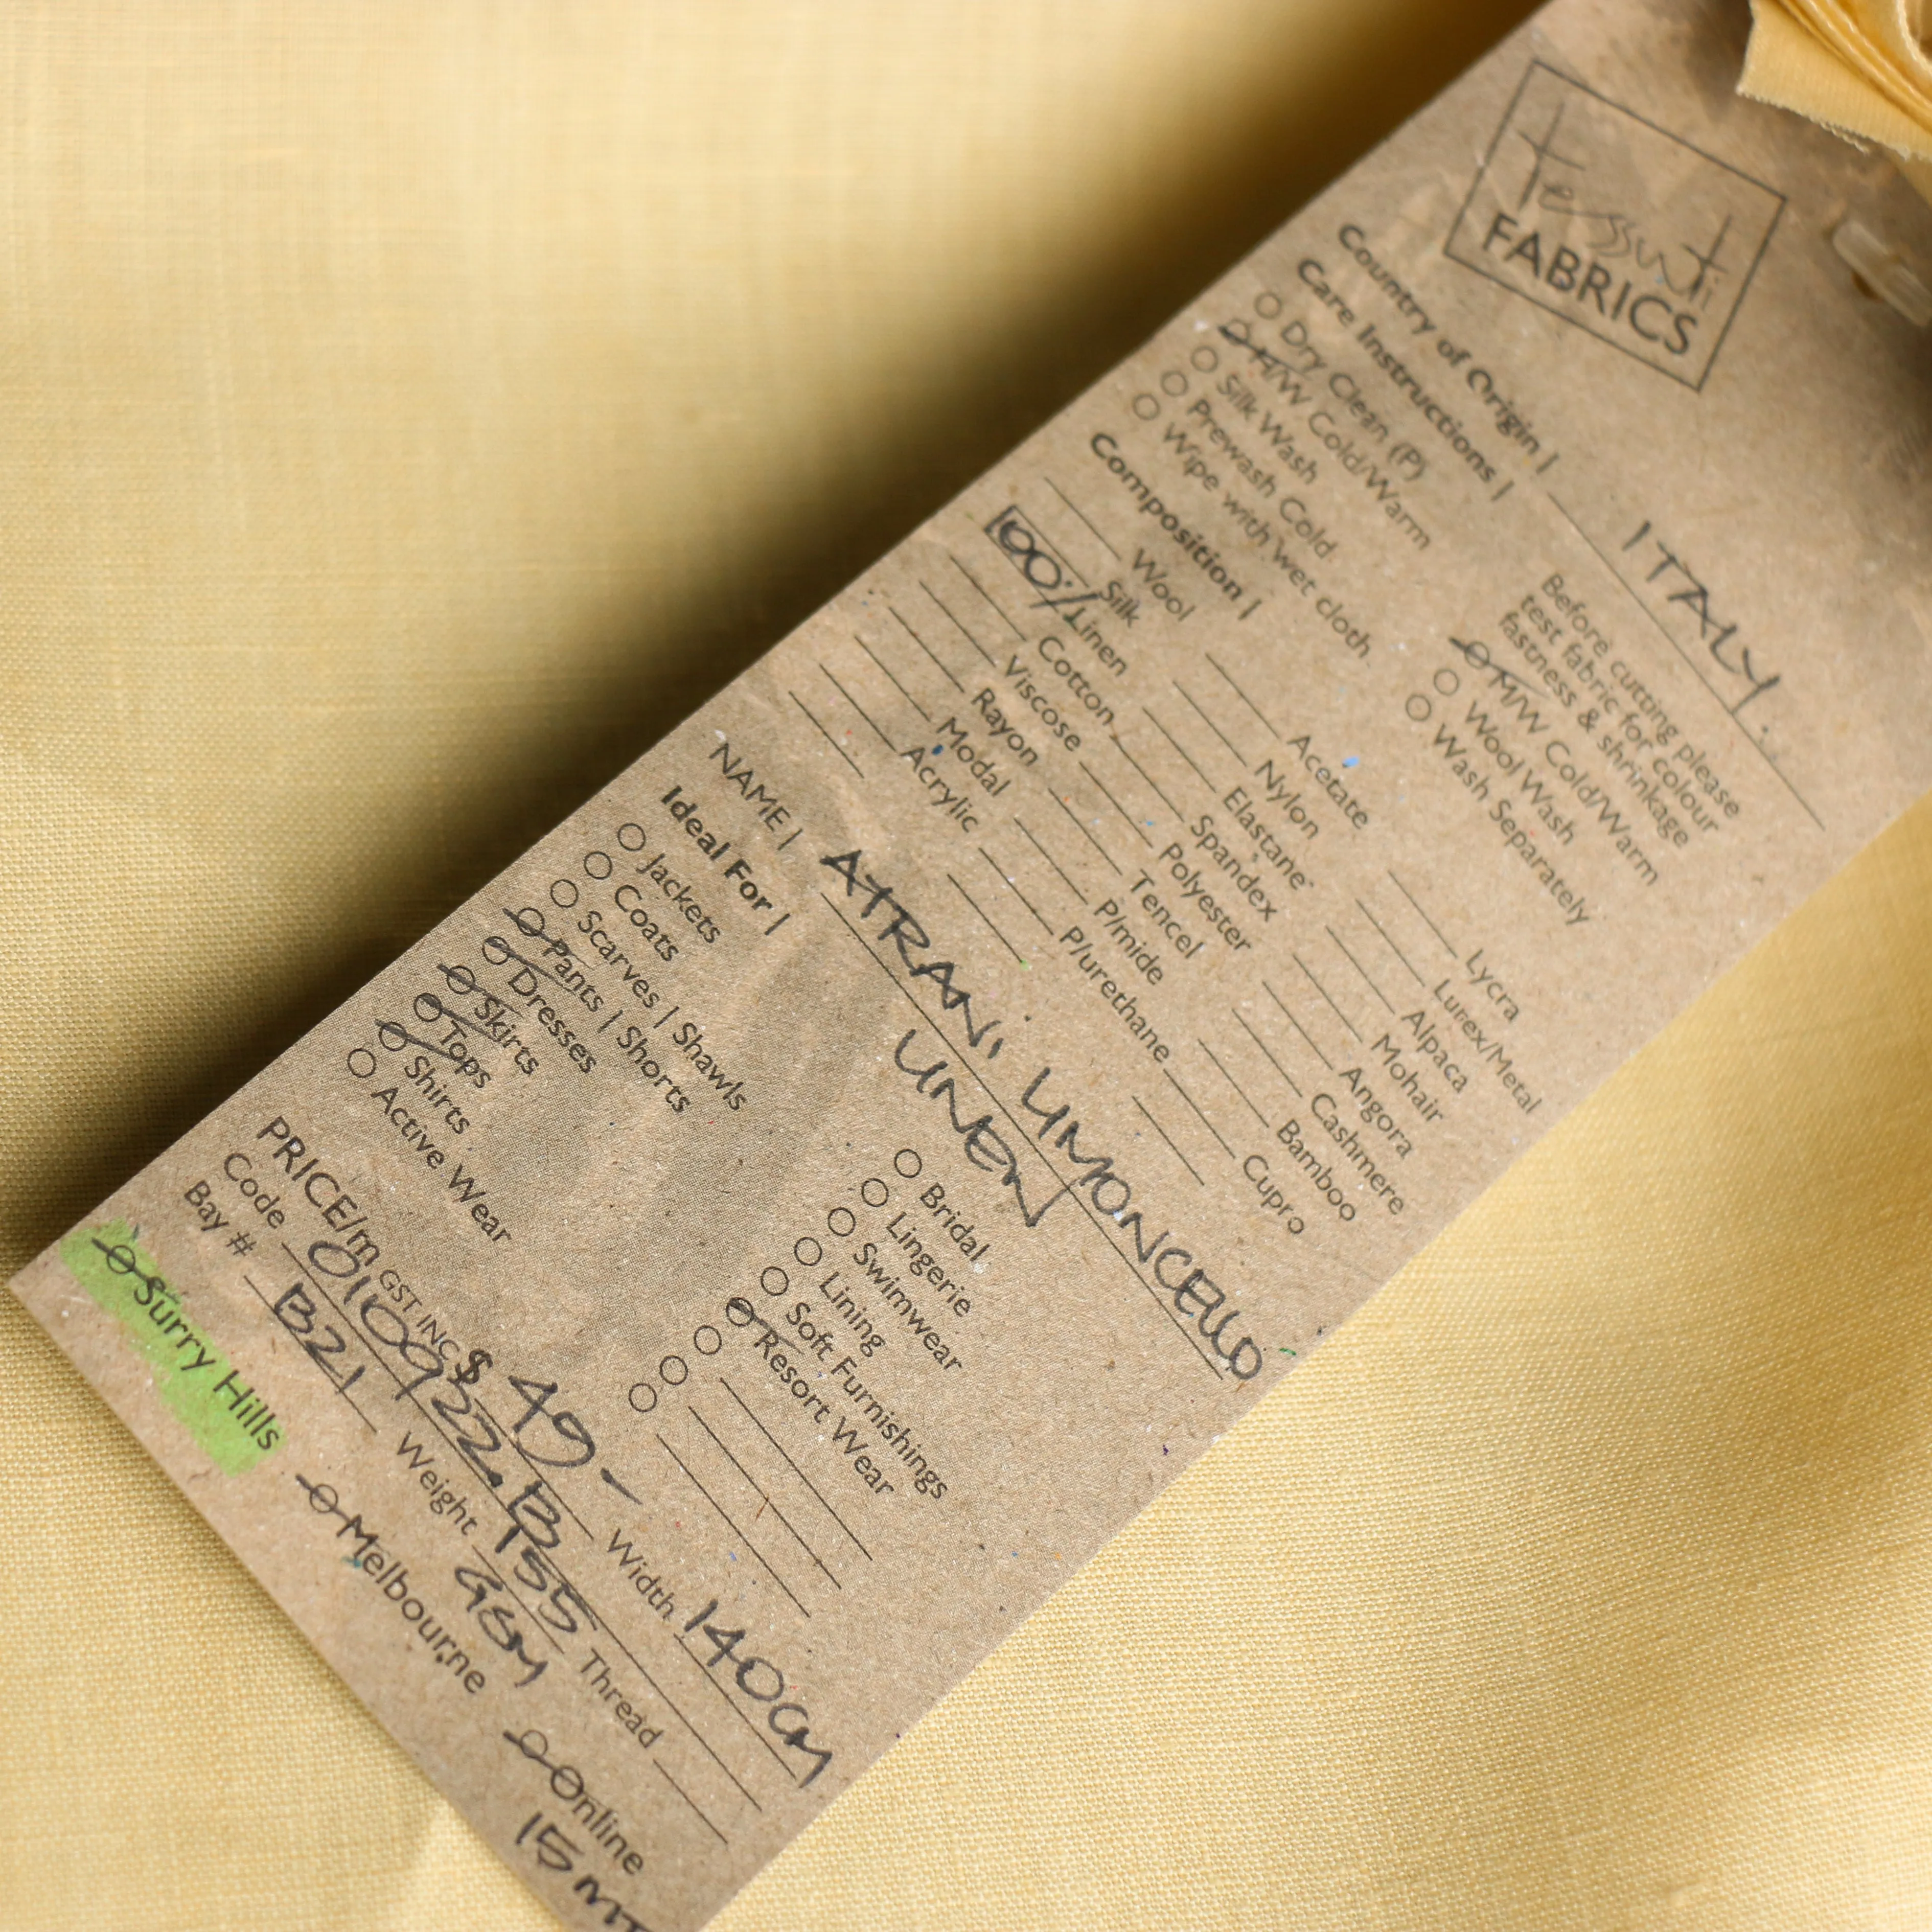 Tessuti
FABRICS
Country of Origin | ITALY.
Care Instructions |
Before cutting please
test fabric for colour
fastness & shrinkage
Dry Clean (P)
H/W Cold/Warm
M/W Cold/Warm
Silk Wash
Wool Wash
Prewash Cold
Wash Separately
Wipe with wet cloth
Composition |
Wool
Acetate
Lycra
Silk
Nylon
Lurex/Metal
100% Linen
Elastane
Alpaca
Cotton
Spandex
Mohair
Viscose
Polyester
Angora
Rayon
Tencel
Cashmere
Modal
P/mide
Bamboo
Acrylic
P/urethane
Cupro
NAME | ATRANI LIMONCELLO
LINEN
Ideal For |
Jackets
Bridal
Coats
Lingerie
Scarves | Shawls
Swimwear
Pants | Shorts
Lining
Dresses
Soft Furnishings
Skirts
Resort Wear
Tops
Shirts
Active Wear
PRICE/m GST INC $ 49- Width 140CM
Code 010922.B
Bay # B21 Weight 155 GSM Thread
Surry Hills Melbourne Online
15 MT